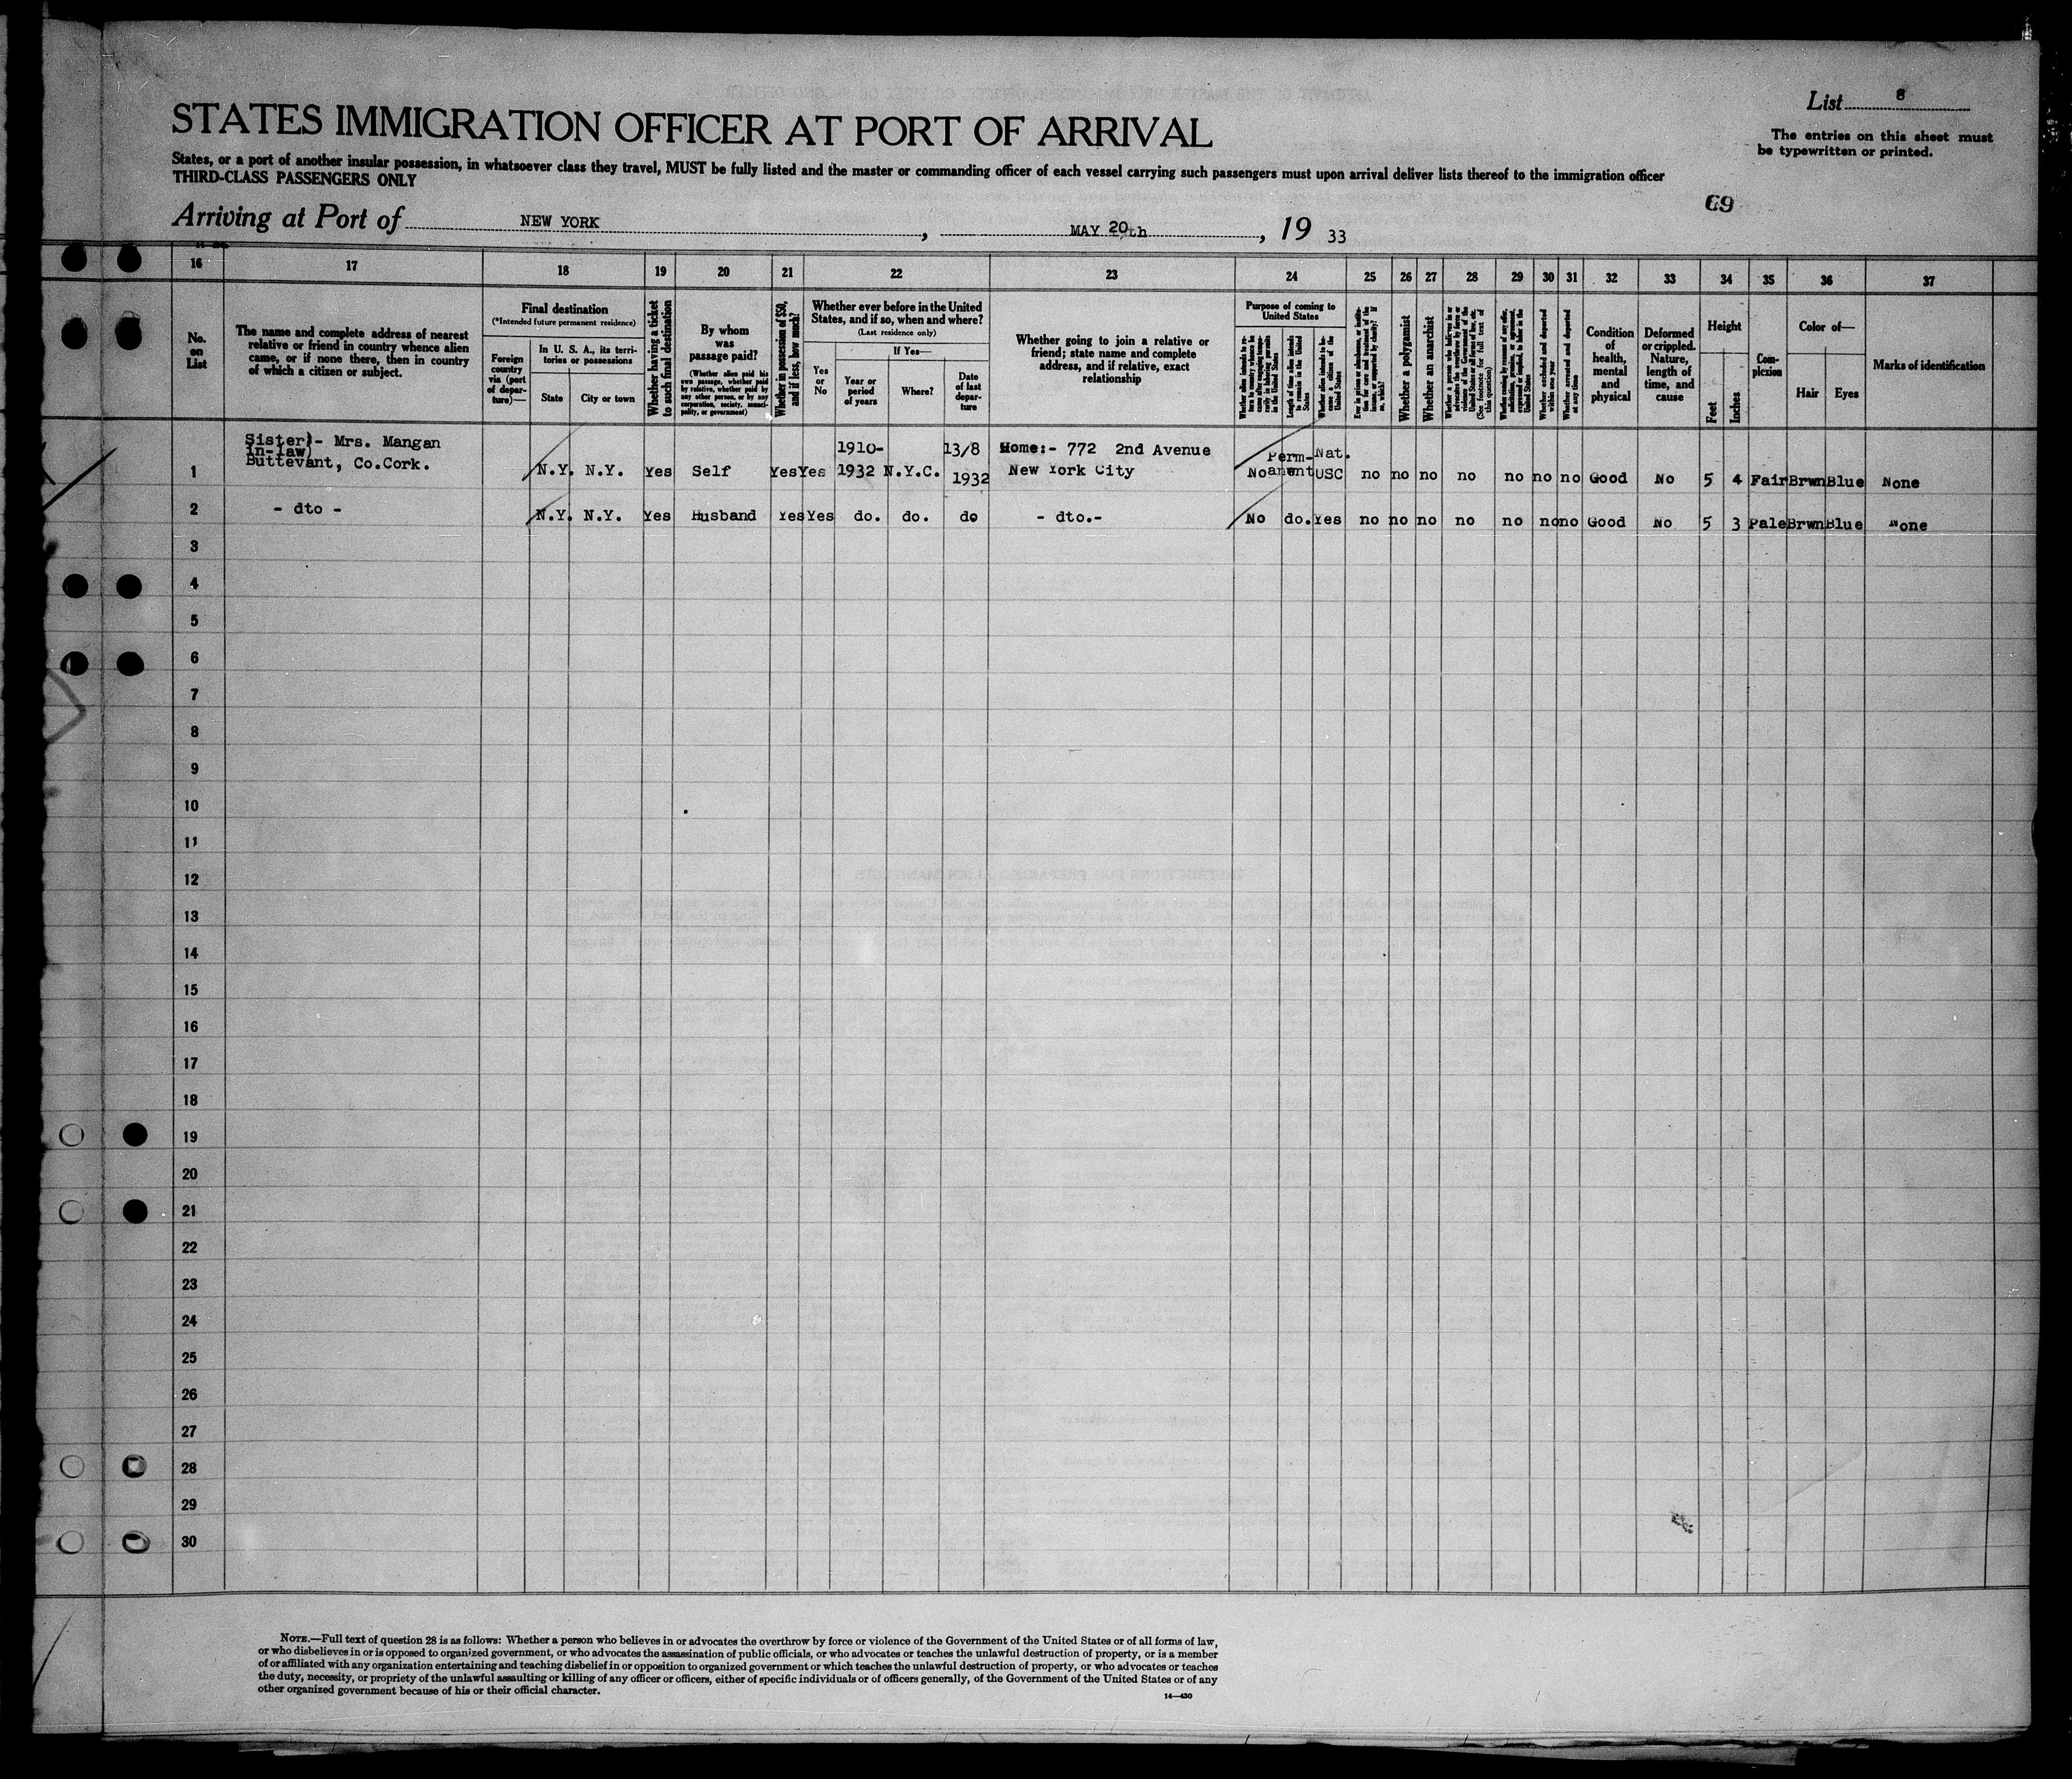 List 8
STATES IMMIGRATION OFFICER AT PORT OF ARRIVAL
The entries on this sheet must
be typewritten or printed.
States, or a port of another insular possession, in whatsoever class they travel, MUST be fully listed and the master or commanding officer of each vessel carrying such passengers must upon arrival deliver lists thereof to the immigration officer
THIRD-CLASS PASSENGERS ONLY
69
Arriving at Port of NEW YORK, MAY 20th, 19 33
16 17 18 19 20 21 22 23 24 25 26 27 28 29 30 31 32 33 34 35 36 37
No. on List
The name and complete address of nearest
relative or friend in country whence alien
came, or if none there, then in country
of which a citizen or subject.
Final destination
(*Intended future permanent residence)
Foreign country via (port of departure)—
In U. S. A., its territories or possessions
State
City or town
Whether having a ticket to such final destination
By whom was passage paid?
(Whether alien paid his own passage, whether paid by relative, whether paid by any other person, or by any corporation, society, municipality, or government)
Whether in possession of $50, and if less, how much?
Whether ever before in the United States, and if so, when and where?
(Last residence only)
Yes or No
If Yes—
Year or period of years
Where?
Date of last departure
Whether going to join a relative or
friend; state name and complete
address, and if relative, exact
relationship
Purpose of coming to United States
Length of time alien intends to remain in the United States
Whether alien intends to become a citizen of the United States
Whether a polygamist
Whether an anarchist
(See footnote for full text of this question)
Whether excluded and deported within one year
Whether arrested and deported at any time
Condition of health, mental and physical
Deformed or crippled. Nature, length of time, and cause
Height
Feet
Inches
Complexion
Color of—
Hair
Eyes
Marks of identification
Sister)- Mrs. Mangan
in-law)
Buttevant, Co.Cork.
1 N.Y. N.Y. Yes Self Yes Yes 1910-1932 N.Y.C. 13/8 1932 Home:- 772 2nd Avenue New York City No Permanent Nat. USC no no no no no no no Good No 5 4 Fair Brwn Blue None
2 - dto - N.Y. N.Y. Yes Husband Yes Yes do. do. do - dto.- No do. Yes no no no no no no no Good No 5 3 Pale Brwn Blue None
3
4
5
6
7
8
9
10
11
12
13
14
15
16
17
18
19
20
21
22
23
24
25
26
27
28
29
30
NOTE.—Full text of question 28 is as follows: Whether a person who believes in or advocates the overthrow by force or violence of the Government of the United States or of all forms of law,
or who disbelieves in or is opposed to organized government, or who advocates the assassination of public officials, or who advocates or teaches the unlawful destruction of property, or is a member
of or affiliated with any organization entertaining and teaching disbelief in or opposition to organized government or which teaches the unlawful destruction of property, or who advocates or teaches
the duty, necessity, or propriety of the unlawful assaulting or killing of any officer or officers, either of specific individuals or of officers generally, of the Government of the United States or of any
other organized government because of his or their official character.
14—430